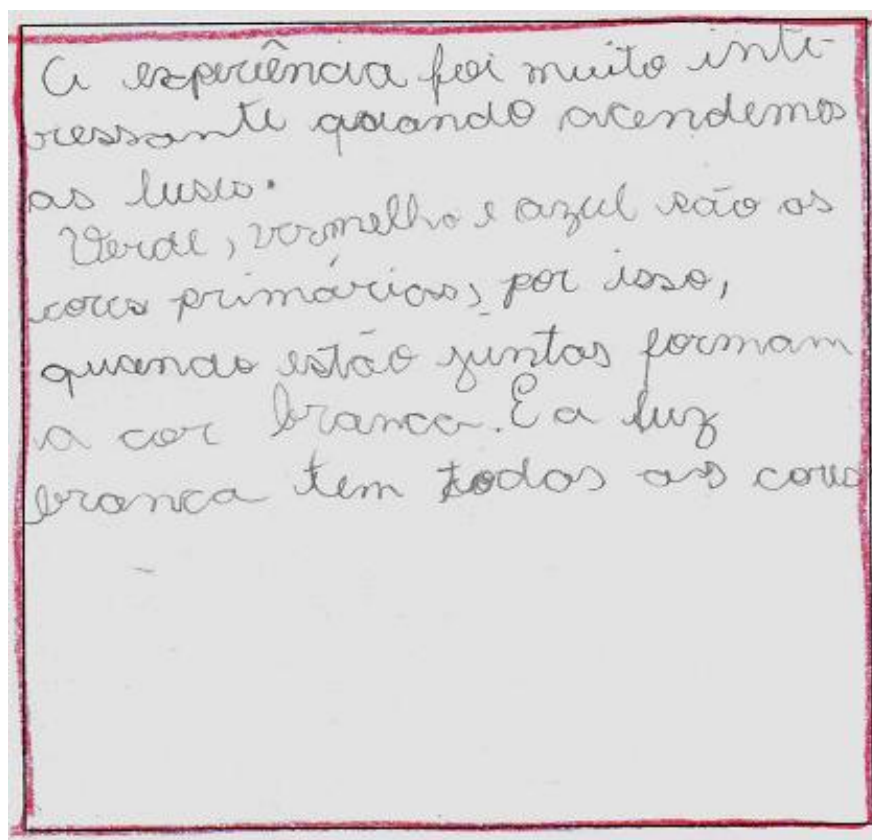 A experiência foi muito inte-
ressante quando acendemos
as luses.
Verde, vermelho e azul são as
cores primárias, por isso,
quando estão juntas formam
a cor branca. E a luz
branca tem todas as cores